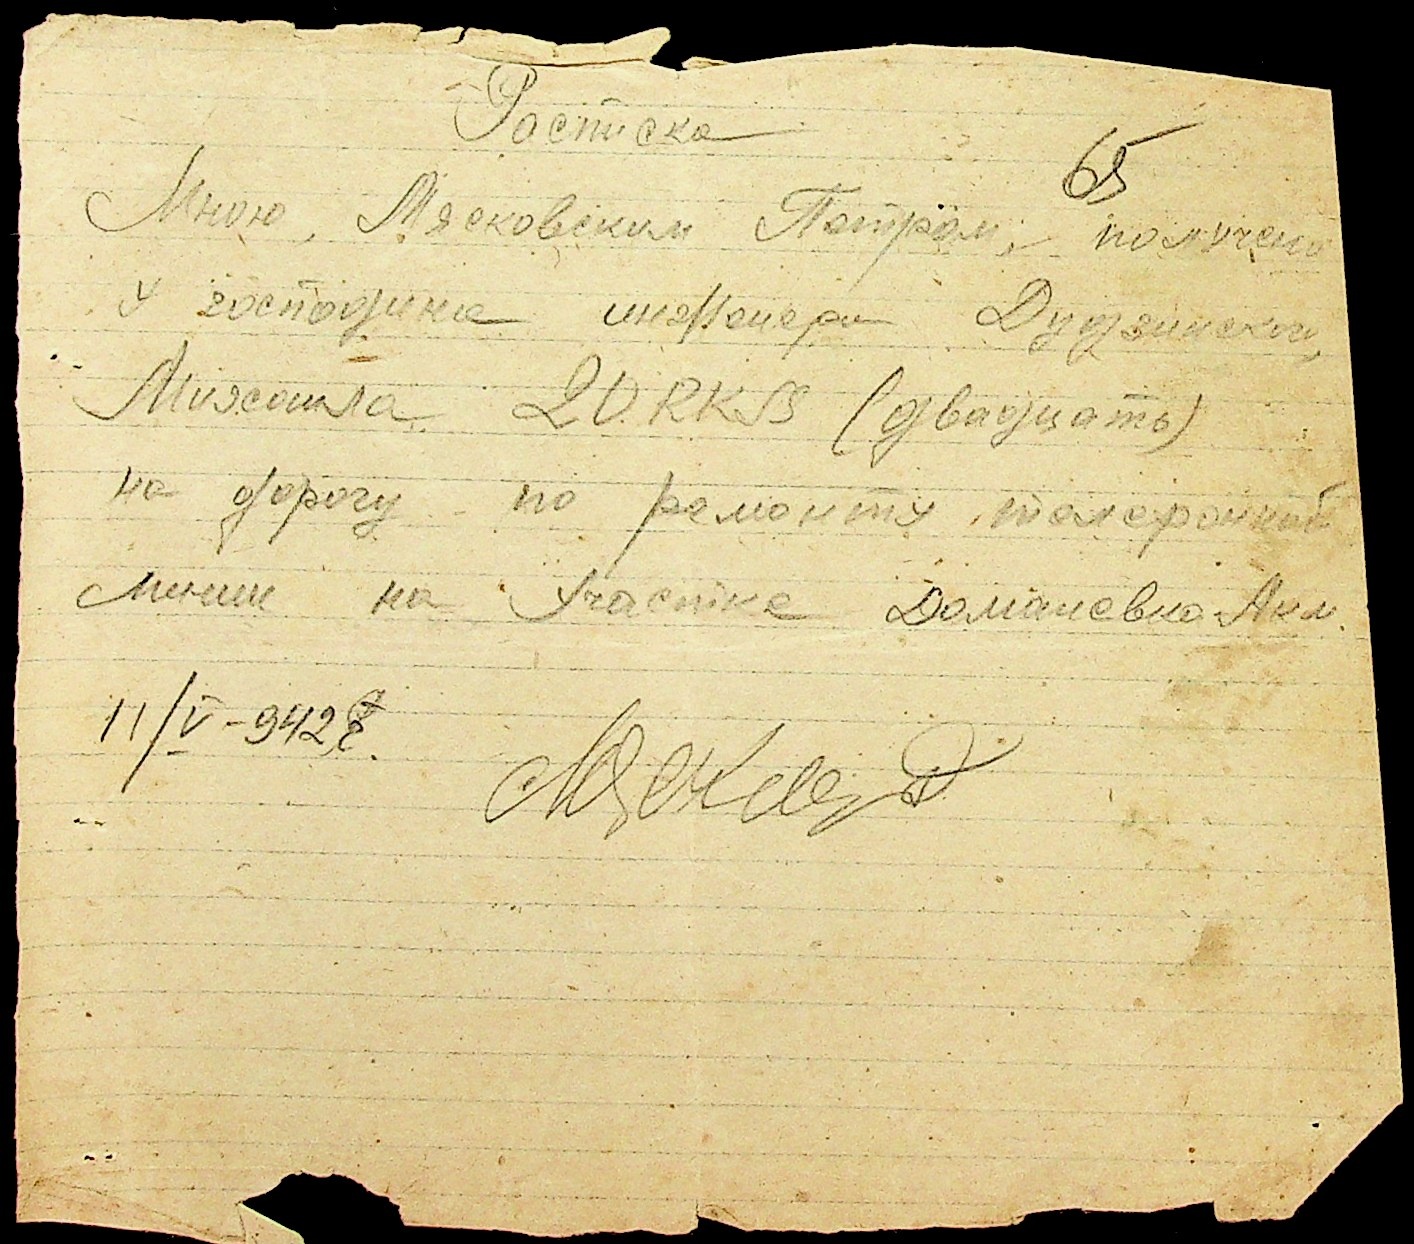 Расписка
65
Мною, Мясковским Петром, получено
у господина инженера Дудзинского,
Михаила 20 RKS (двадцать)
на дорогу по ремонту телефонной
линии на участке Доманевка-Акм.
11/V-942 г.